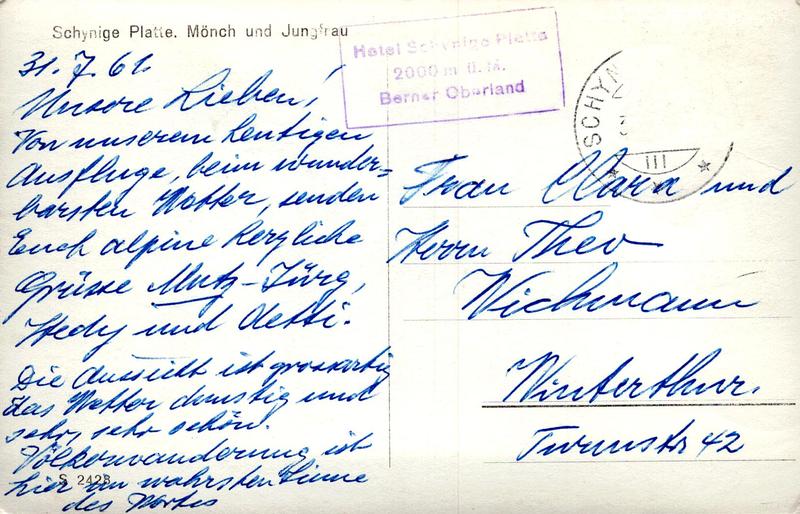 Schynige Platte. Mönch und Jungfrau
Hotel Schynige Platte
2000 m ü. M.
Berner Oberland
SCHYN
III
31.7.61.
Unsere Lieben!
Von unserem heutigen
Ausfluge, beim wunder=
barsten Wetter, senden
Euch alpine herzliche
Grüsse Mutz-Jürg,
Hedy und Aetti.
Die Aussicht ist grossartig
das Wetter dunstig und
sehr, sehr schön.
Völkerwanderung ist
hier im wahrsten Sinne
des Wortes
S 2428
Frau Clara und
Herrn Theo
Wichmann
Winterthur.
Turmstr 42